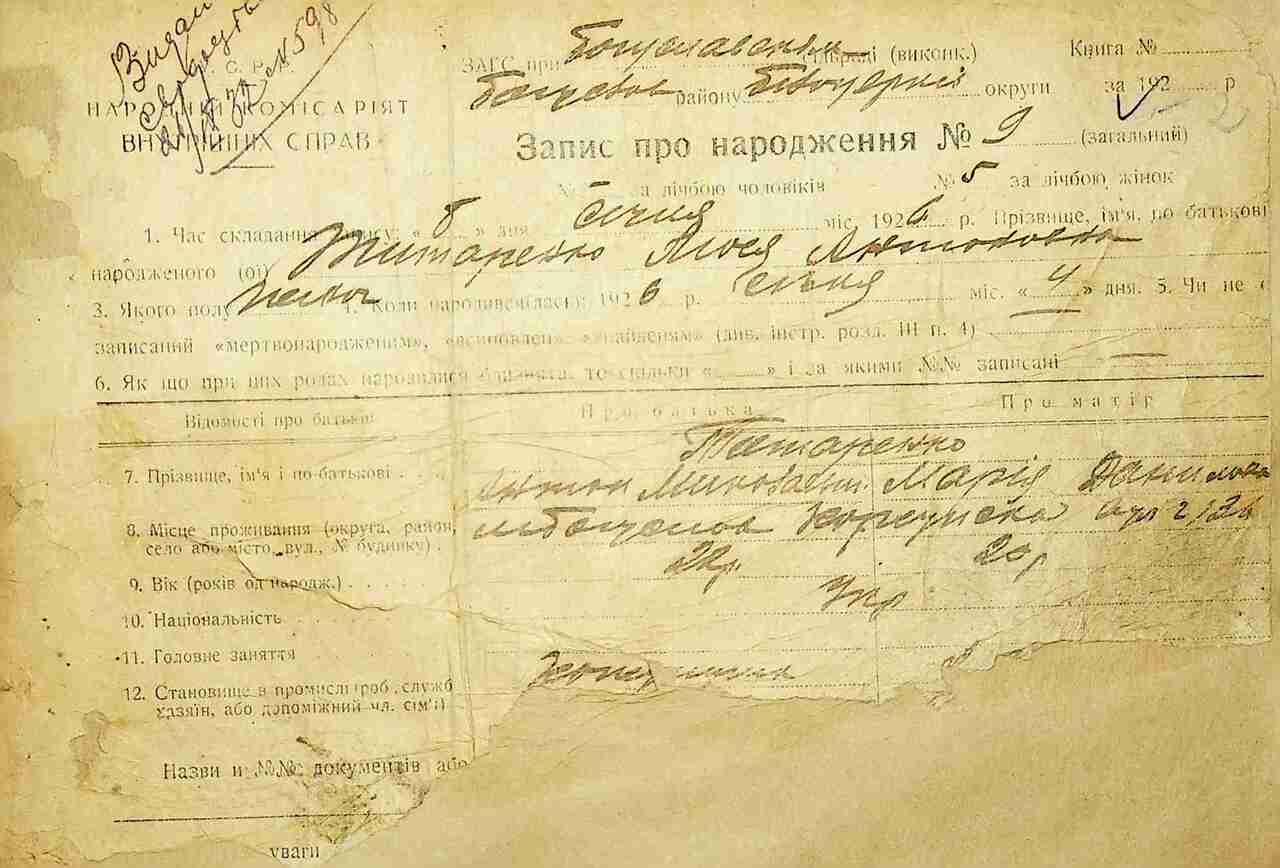 Видан
№ 598
У. С. Р. Р.
НАРОДНИЙ КОМІСАРІЯТ
ВНУТРІШНІХ СПРАВ
ЗАГС при Богуславській сільраді (виконк.) Книга №
району округи за 192 р
Запис про народження № 9 (загальний)
№ за лічбою чоловіків № 5 за лічбою жінок
1. Час складання запису: « 8 » дня січня міс. 1926 р. Прізвище, ім'я, по батькові
народженого (ої) Титаренко Антоновна
3. Якого полу 4. Коли народився(лась): 1926 р. січня міс. « 4 » дня. 5. Чи не є
записаний «мертвонародженим», «всиновлен» «найденям» (див. інстр. розд. III п. 4)
6. Як що при них родах народилися близнята, то скільки « » і за якими №№ записані —
Відомості про батьків Про батька Про матір
Титаренко
7. Прізвище, ім'я і по-батькові Антон Марія Данилова
8. Місце проживання (округа, район,
село або місто, вул., № будинку)
9. Вік (років од народж.) 20р
10. Національність Укр
11. Головне заняття
12. Становище в промислі (роб., служб
хазяїн, або допоміжний чл. сім'ї)
Назви и №№ документів або
уваги